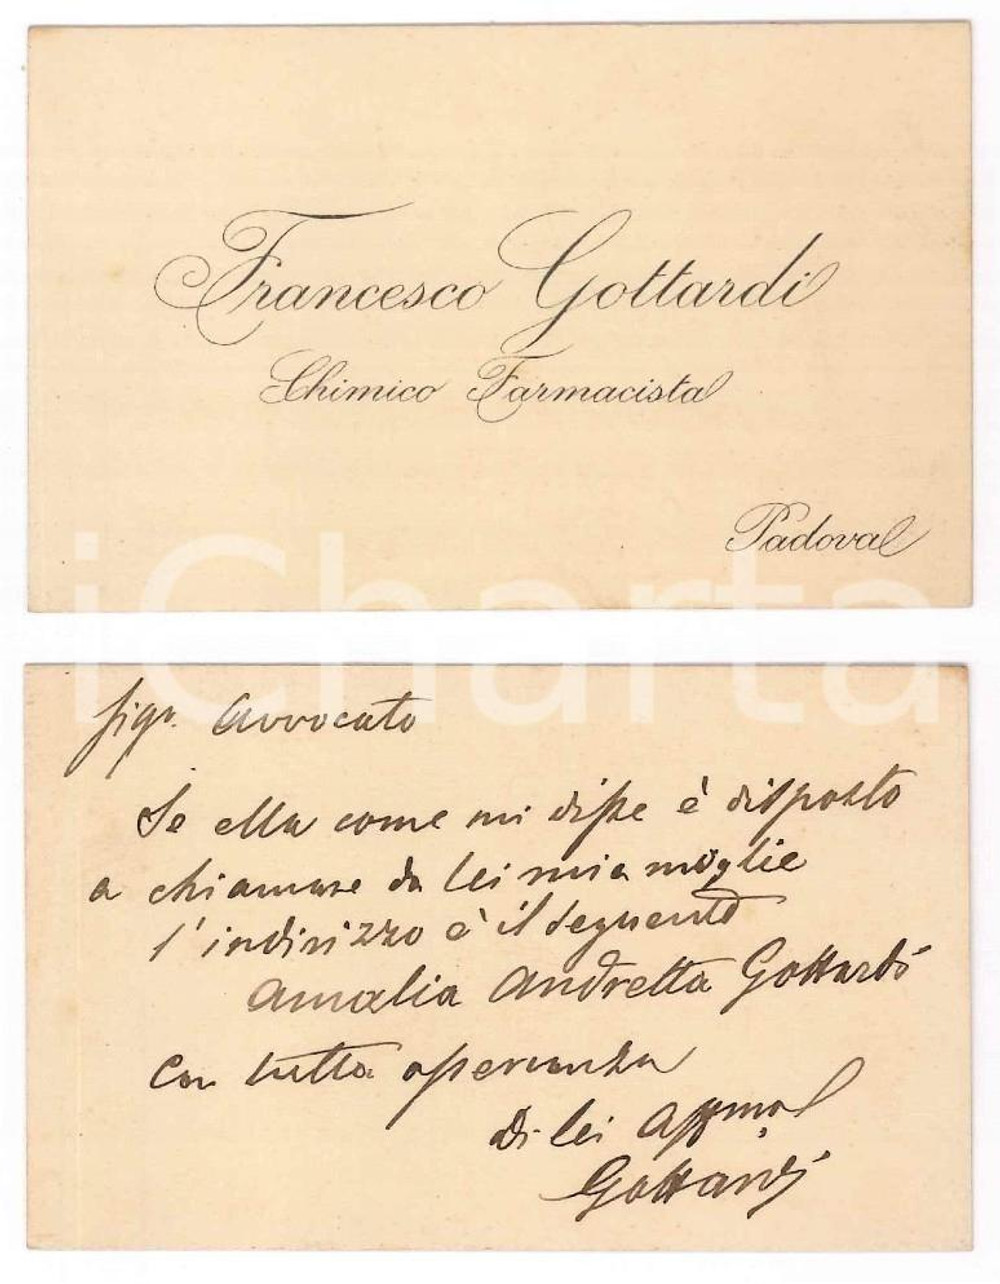 Francesco Gottardi
Chimico Farmacista
Padova
iCharta
Sigr. Avvocato
Se ella come mi disse è disposto
a chiamare da lei mia moglie
l'indirizzo è il seguente
Amalia Andretta Gottardi
Con tutta osservanza
Di lei Affmo
Gottardi